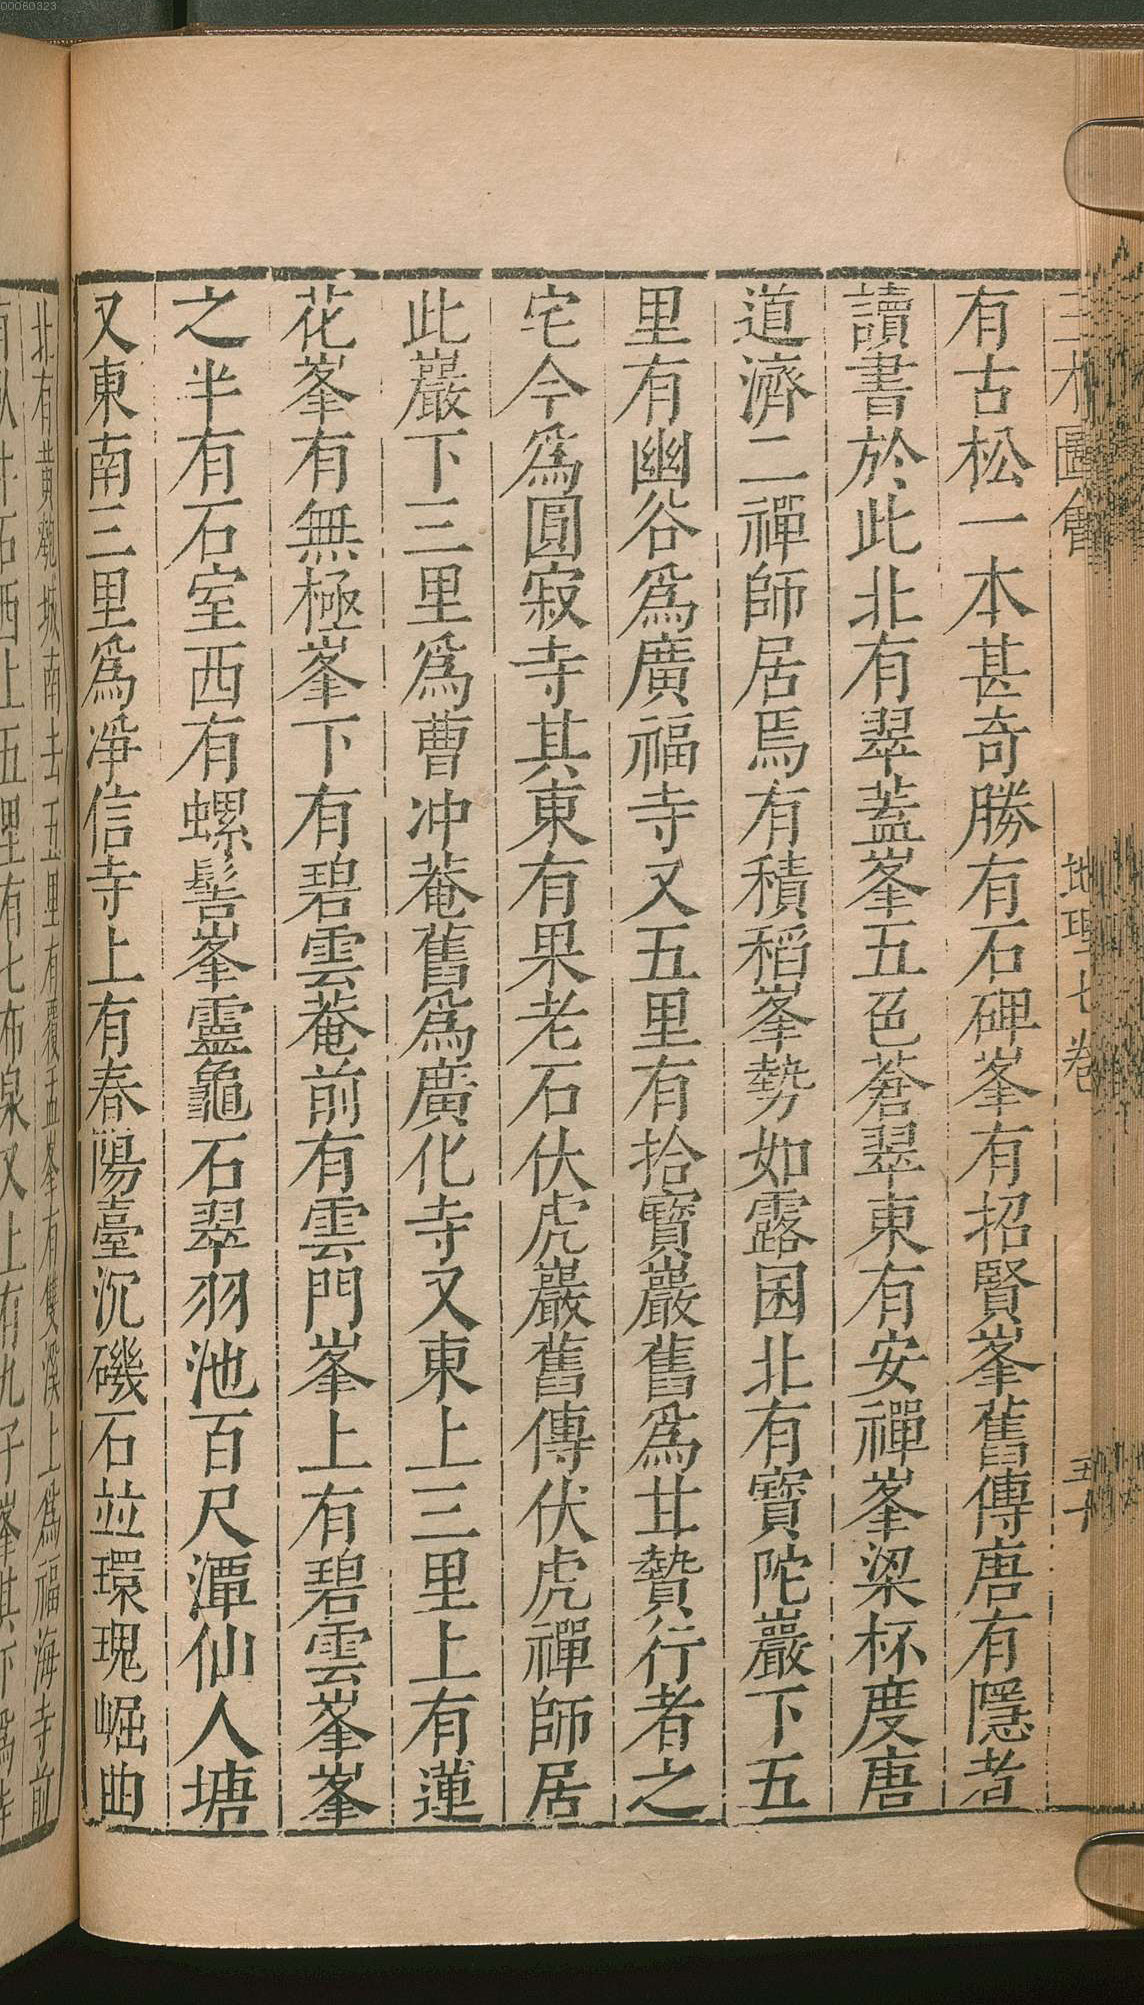 00060323
三才圖會 地理七卷 五十
有古松一本甚奇勝有石碑峯有招賢峯舊傳唐有隱者
讀書於此北有翠蓋峯五色蒼翠東有安禪峯梁杯度唐
道濟二禪師居焉有積稻峯勢如露囷北有寶陀巖下五
里有幽谷為廣福寺又五里有拾寶巖舊為甘贄行者之
宅今為圓寂寺其東有果老石伏虎巖舊傳伏虎禪師居
此巖下三里為曹冲菴舊為廣化寺又東上三里上有蓮
花峯有無極峯下有碧雲菴前有雲門峯上有碧雲峯峯
之半有石室西有螺髻峯靈龜石翠羽池百尺潭仙人塘
又東南三里為淨信寺上有春陽臺沉磯石並環瑰崛曲
北有黃 城南去五里有覆盂峯有雙溪上為福海寺前
石西上五里有七布泉又上有九子峯其下為